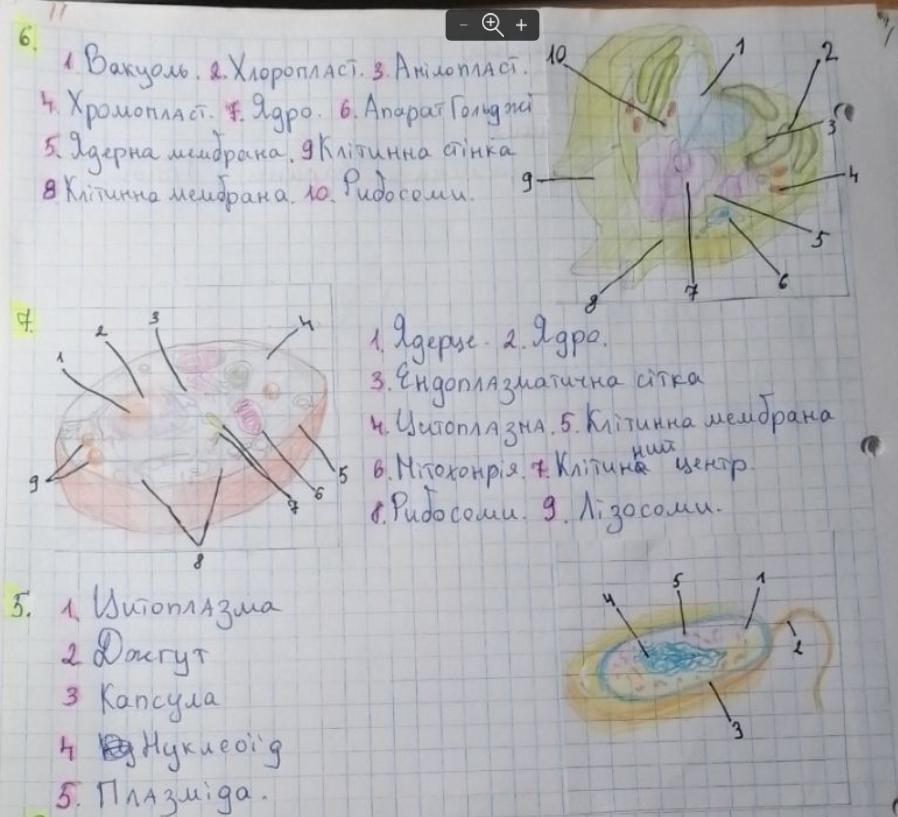 6.
1. Вакуоль. 2. Хлоропласт. 3. Амілопласт.
4. Хромопласт. 7. Ядро. 6. Апарат Гольджі
5. Ядерна мембрана. 9 Клітинна стінка
8 Клітинна мембрана. 10. Рибосоми.
10 1 2
3
9 4
5
6
8 7
7.
1 2 3 4
9 5
7 6
8
1. Ядерце. 2. Ядро.
3. Ендоплазматична сітка
4. Цитоплазма. 5. Клітинна мембрана
6. Мітохонрія. 7. Клітинний центр.
8. Рибосоми. 9. Лізосоми.
5.
1. Цитоплазма
2 Джгут
3 Капсула
4 Нуклеоїд
5. Плазміда.
4 5 1
2
3